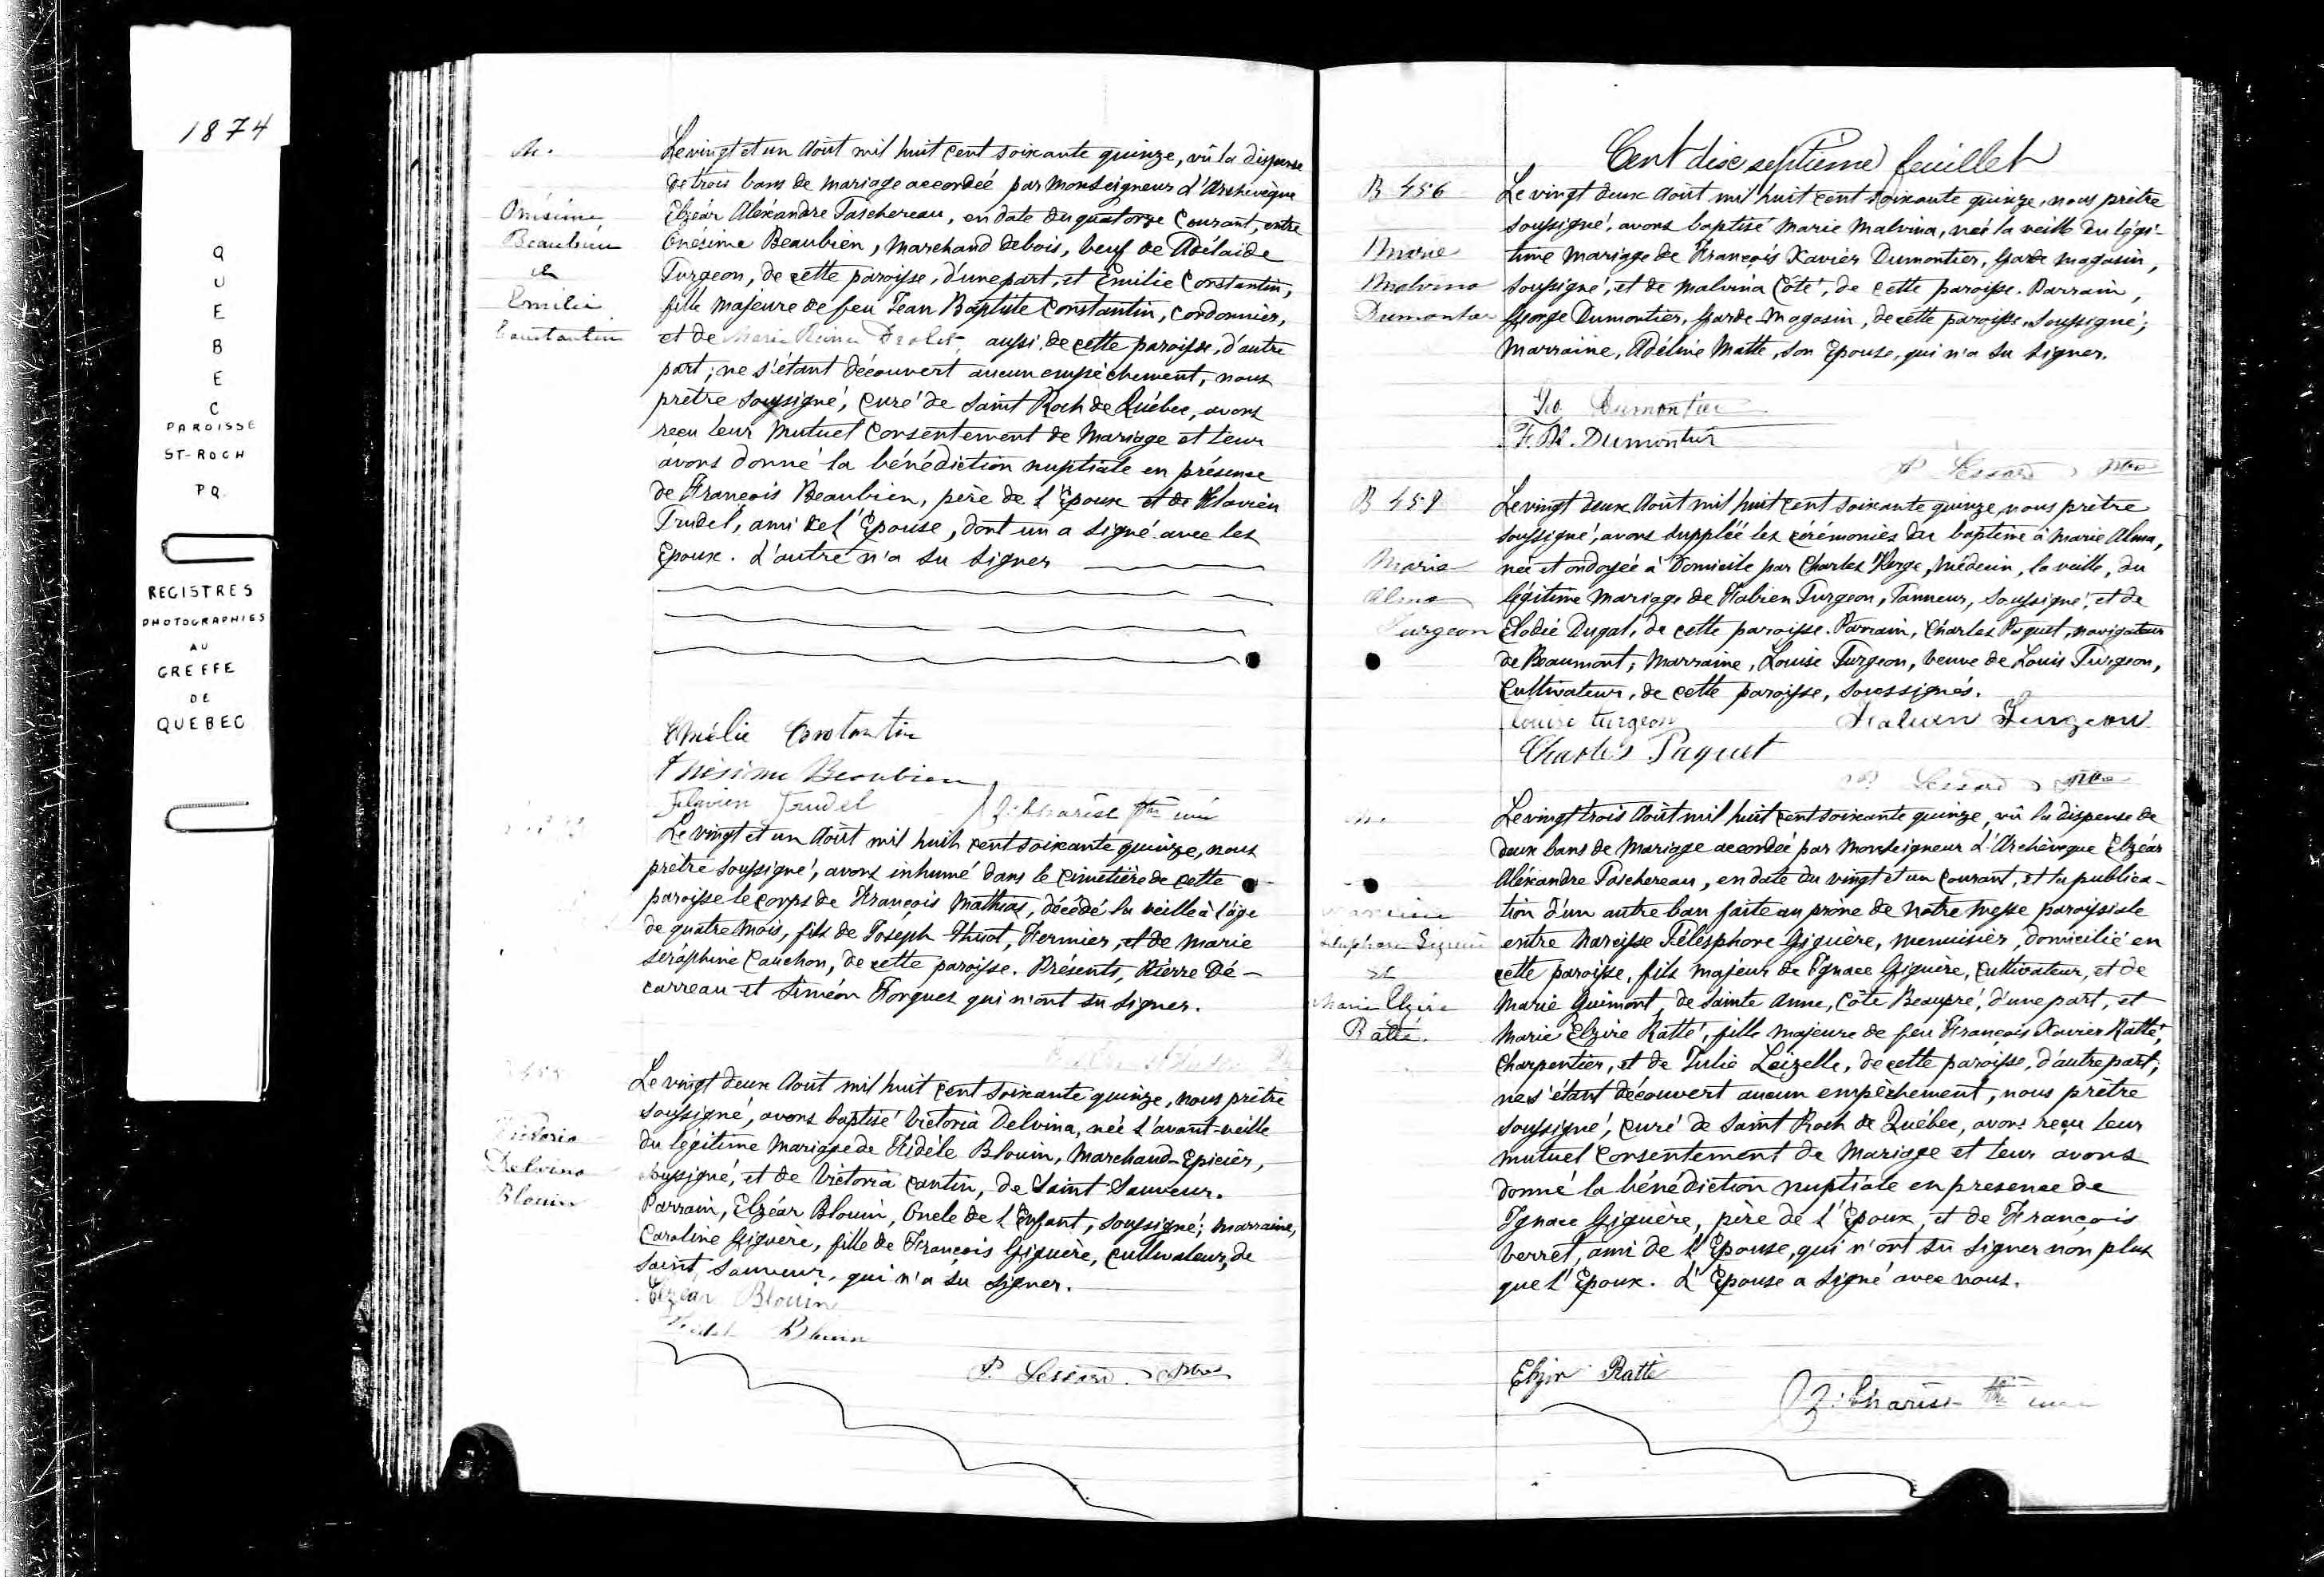 1874
QUEBEC
PAROISSE
ST-ROCH
PQ.
REGISTRES
PHOTOGRAPHIES
AU
GREFFE
DE
QUEBEC
M.
Onésime
Beaubien
&
Emilie
Constantin
Le vingt et un Août mil huit cent soixante quinze, vû la dispense
de trois bans de mariage accordée par Monseigneur l'Archevêque
Elzéar Aléxandre Taschereau, en date du quatorze Courant, entre
Onésime Beaubien, Marchand de bois, veuf de Adélaide
Turgeon, de cette paroisse, d'une part, et Emilie Constantin,
fille majeure de feu Jean Baptiste Constantin, Cordonnier,
et de Marie Reine Drolet, aussi de cette paroisse, d'autre
part; ne s'étant découvert aucun empêchement, nous
prêtre soussigné, Curé de Saint Roch de Québec, avons
reçu leur Mutuel Consentement de Mariage et leur
avons donné la bénédiction nuptiale en présence
de François Beaubien, père de l'Epoux et de Flavien
Trudel, ami de l'Epouse, dont un a signé avec les
Epoux. L'autre n'a su signer
Emélie Constantin
Onésime Beaubien
Flavien Trudel Z. Charest Ptre curé
Le vingt et un Août mil huit cent soixante quinze, nous
prêtre soussigné, avons inhumé dans le Cimetière de cette
paroisse le corps de François Mathias, décédé la veille à l'âge
de quatre mois, fils de Joseph Huot, Fermier, et de Marie
Séraphine Cauchon, de cette paroisse. Présents, Pierre Dé-
carreau et Siméon Forgues qui n'ont su signer.
455
Victoria
Delvina
Blouin
Le vingt deux Août mil huit cent soixante quinze, nous prêtre
soussigné, avons baptisé Victoria Delvina, née l'avant-veille
du légitime Mariage de Fidèle Blouin, Marchand-Epicier,
soussigné, et de Victoria Cantin, de Saint Sauveur.
Parrain, Elzéar Blouin, Oncle de l'Enfant, soussigné; Marraine,
Caroline Giguère, fille de François Giguère, Cultivateur, de
Saint Sauveur, qui n'a su signer.
Elzéar Blouin
Fidel Blouin
P. Lessard Ptre
Cent dix septième feuillet
B 456
Marie
Malvina
Dumontier
Le vingt deux Août mil huit cent soixante quinze, nous prêtre
soussigné, avons baptisé Marie Malvina, née la veille du légi-
time Mariage de François Xavier Dumontier, Garde magasin,
soussigné, et de Malvina Côté, de cette paroisse. Parrain,
George Dumontier, Garde-Magasin, de cette paroisse, soussigné;
Marraine, Adéline Matte, son Epouse, qui n'a su signer.
Geo Dumontier
F. X. Dumontier
P. Lessard Ptre
B 457
Marie
Alma
Turgeon
Le vingt deux Août mil huit cent soixante quinze nous prêtre
soussigné, avons suppléé les cérémonies du baptême à Marie Alma,
née et ondoyée à Domicile par Charles Verge, Médecin, la veille, du
légitime Mariage de Fabien Turgeon, Tanneur, soussigné, et de
Elodie Dugal, de cette paroisse. Parrain, Charles Paquet, navigateur
de Beaumont; Marraine, Louise Turgeon, veuve de Louis Turgeon,
Cultivateur, de cette paroisse, soussignés.
Louise turgeon Fabien Turgeon
Charles Paquet
P. Lessard Ptre
M.
Narcisse
Télesphore Giguère
&
Marie Elzire
Ratté.
Le vingt trois Août mil huit cent soixante quinze, vû la dispense de
deux bans de Mariage accordée par Monseigneur l'Archevêque Elzéar
Aléxandre Taschereau, en date du vingt et un Courant, et la publica-
tion d'un autre ban faite au prône de notre Messe paroissiale
entre Narcisse Télesphore Giguère, menuisier, domicilié en
cette paroisse, fils majeur de Ignace Giguère, Cultivateur, et de
Marie Guimont, de Sainte Anne, Côte Beaupré, d'une part, et
Marie Elzire Ratté, fille majeure de feu François Xavier Ratté,
Charpentier, et de Julie Loizelle, de cette paroisse, d'autre part;
ne s'étant découvert aucun empêchement, nous prêtre
soussigné, Curé de Saint Roch de Québec, avons reçu leur
mutuel Consentement de Mariage et leur avons
donné la bénédiction nuptiale en presence de
Ignace Giguère, père de l'Epoux, et de François
Verret, ami de l'Epouse, qui n'ont su signer non plus
que l'Epoux. L'Epouse a signé avec nous.
Elzire Ratté
Z. Charest Ptre curé